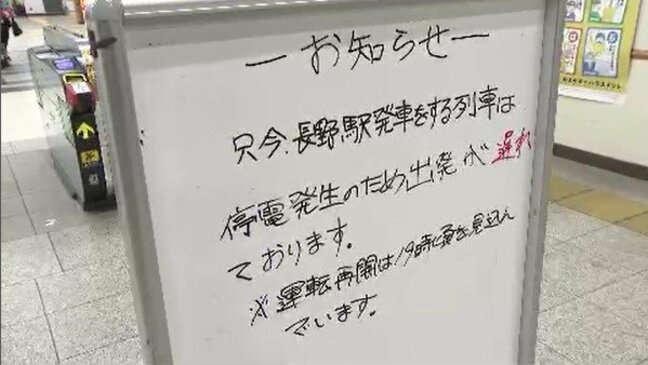 ーお知らせー
只今、長野駅発車をする列車は
停電発生のため出発が遅れ
ております。
※運転再開は19時頃を見込ん
でいます。